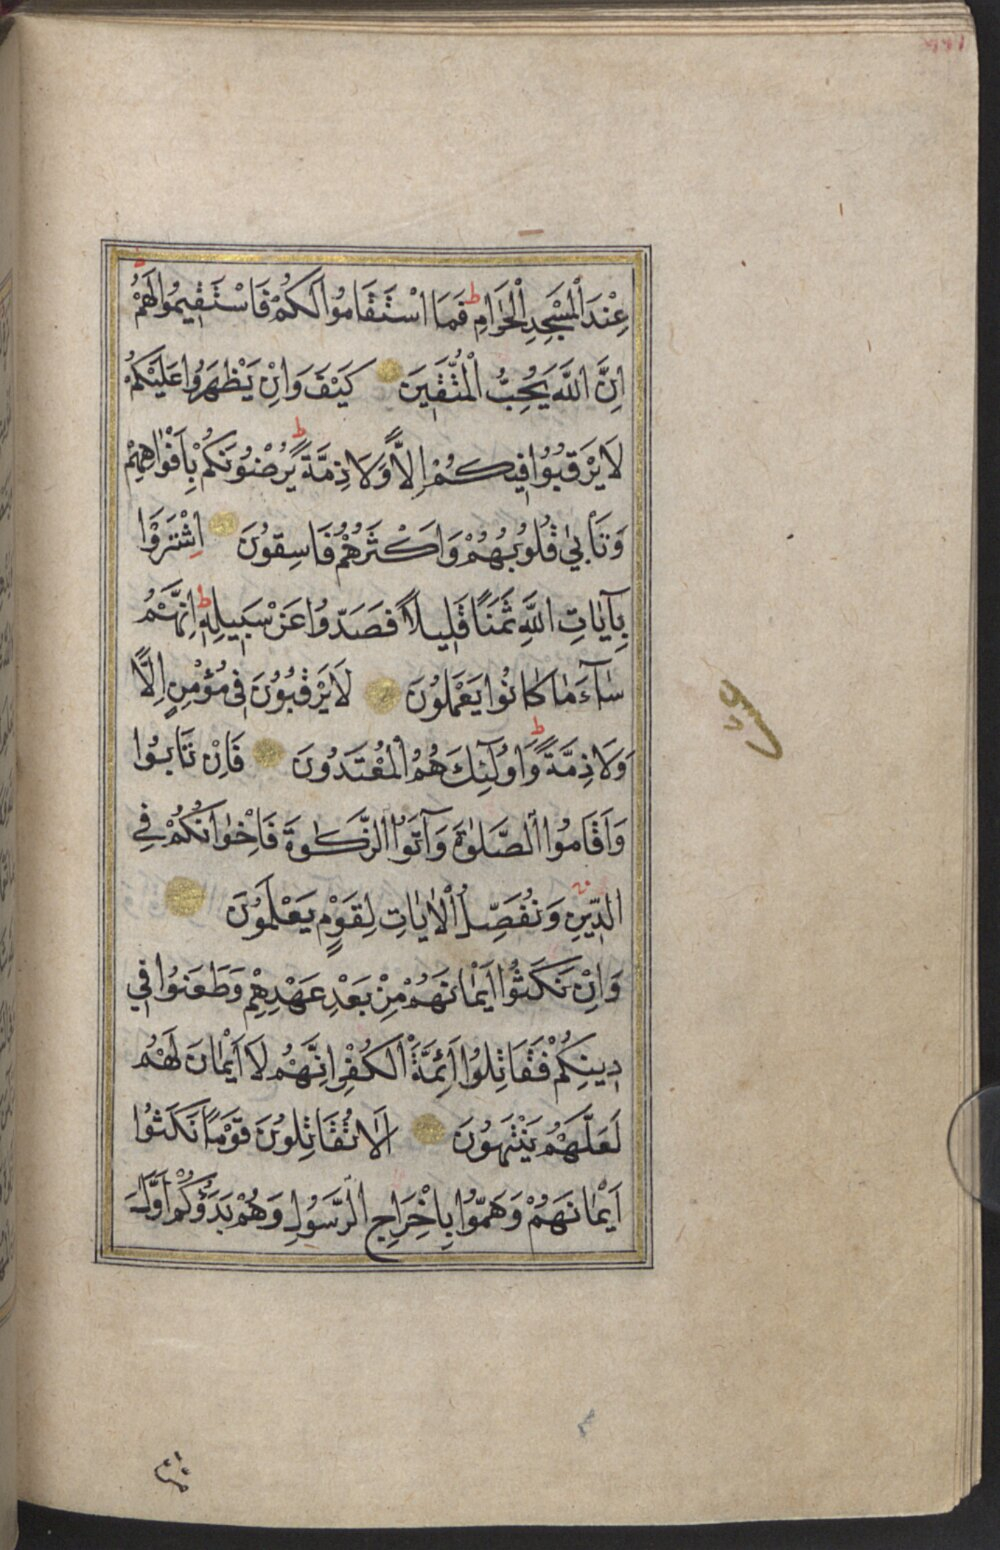 عِنْدَ الْمَسْجِدِ الْحَرَامِ ط فَمَا اسْتَقَامُوا لَكُمْ فَاسْتَقِيمُوا لَهُمْ ط
اِنَّ اللّٰهَ يُحِبُّ الْمُتَّقِينَ كَيْفَ وَاِنْ يَظْهَرُوا عَلَيْكُمْ
لَا يَرْقُبُوا فِيكُمْ اِلًّا وَلَا ذِمَّةً ط يُرْضُونَكُمْ بِاَفْوَاهِهِمْ
وَتَاْبٰى قُلُوبُهُمْ وَاَكْثَرُهُمْ فَاسِقُونَ اِشْتَرَوْا
بِآيَاتِ اللّٰهِ ثَمَنًا قَلِيلًا فَصَدُّوا عَنْ سَبِيلِهِ ط اِنَّهُمْ
سَآءَ مَا كَانُوا يَعْمَلُونَ لَا يَرْقُبُونَ فِى مُؤْمِنٍ اِلًّا
وَلَا ذِمَّةً ط وَاُولٰٓئِكَ هُمُ الْمُعْتَدُونَ فَاِنْ تَابُوا
وَاَقَامُوا الصَّلٰوةَ وَآتَوُا الزَّكٰوةَ فَاِخْوَانُكُمْ فِي
الدِّينِ وَنُفَصِّلُ الْاٰيَاتِ لِقَوْمٍ يَعْلَمُونَ
وَاِنْ نَكَثُوا اَيْمَانَهُمْ مِنْ بَعْدِ عَهْدِهِمْ وَطَعَنُوا فِي
دِينِكُمْ فَقَاتِلُوا اَئِمَّةَ الْكُفْرِ اِنَّهُمْ لَا اَيْمَانَ لَهُمْ
لَعَلَّهُمْ يَنْتَهُونَ اَلَا تُقَاتِلُونَ قَوْمًا نَكَثُوا
اَيْمَانَهُمْ وَهَمُّوا بِاِخْرَاجِ الرَّسُولِ وَهُمْ بَدَؤُكُمْ اَوَّلَ